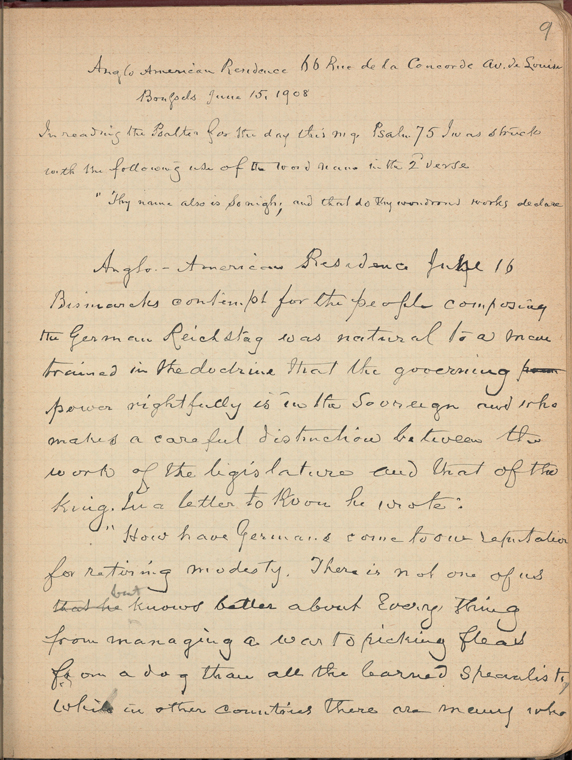 9
Anglo American Residence 66 Rue de la Concorde Av. de Louise
Brussels June 15, 1908
In reading the Psalter for the day this mg. Psalm 75 I was struck
with the following use of the word name in the 2 verse
"Thy name also is so nigh; and that do thy wondrous works declare
Anglo-American Residence June 16
Bismarcks contempt for the people composing
the German Reichstag was natural to a man
trained in the doctrine that the governing
power rightfully is in the Sovereign and who
makes a careful distinction between the
work of the legislature and that of the
king. In a letter to Roon he wrote:
"How have Germans come to our reputation
for retiring modesty. There is not one of us
that he but knows better about Every thing
from managing a war to picking fleas
from a dog than all the learned specialists,
while in other countries there are many who